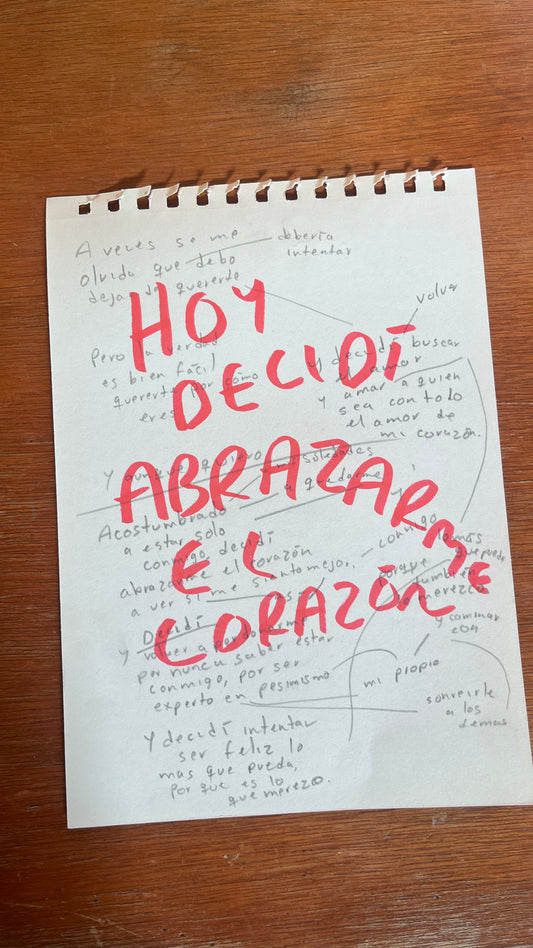 HOY
DECIDÍ
ABRAZARME
EL
CORAZÓN
A veces se me
olvida que debo
deja de quererte
debería
intentar
Pero la verdad
es bien fácil
quererte por cómo
eres
volver
Y decidí buscar
el amor
y amar a quien
sea con todo
el amor de
mi corazón.
Y aunque quiero
mis soledades
a quedarme
Acostumbrado
a estar solo
conmigo, decidí
abrazarme el corazón
a ver si me siento mejor,
conmigo
porque
también
merezco
Decidí
y volver a perdonarme
por nunca saber estar
conmigo, por ser
experto en pesimismo
mi propio
y caminar
con
sonreirle
a los
demas
Y decidí intentar
ser feliz lo
mas que pueda,
por que es lo
que merezco.